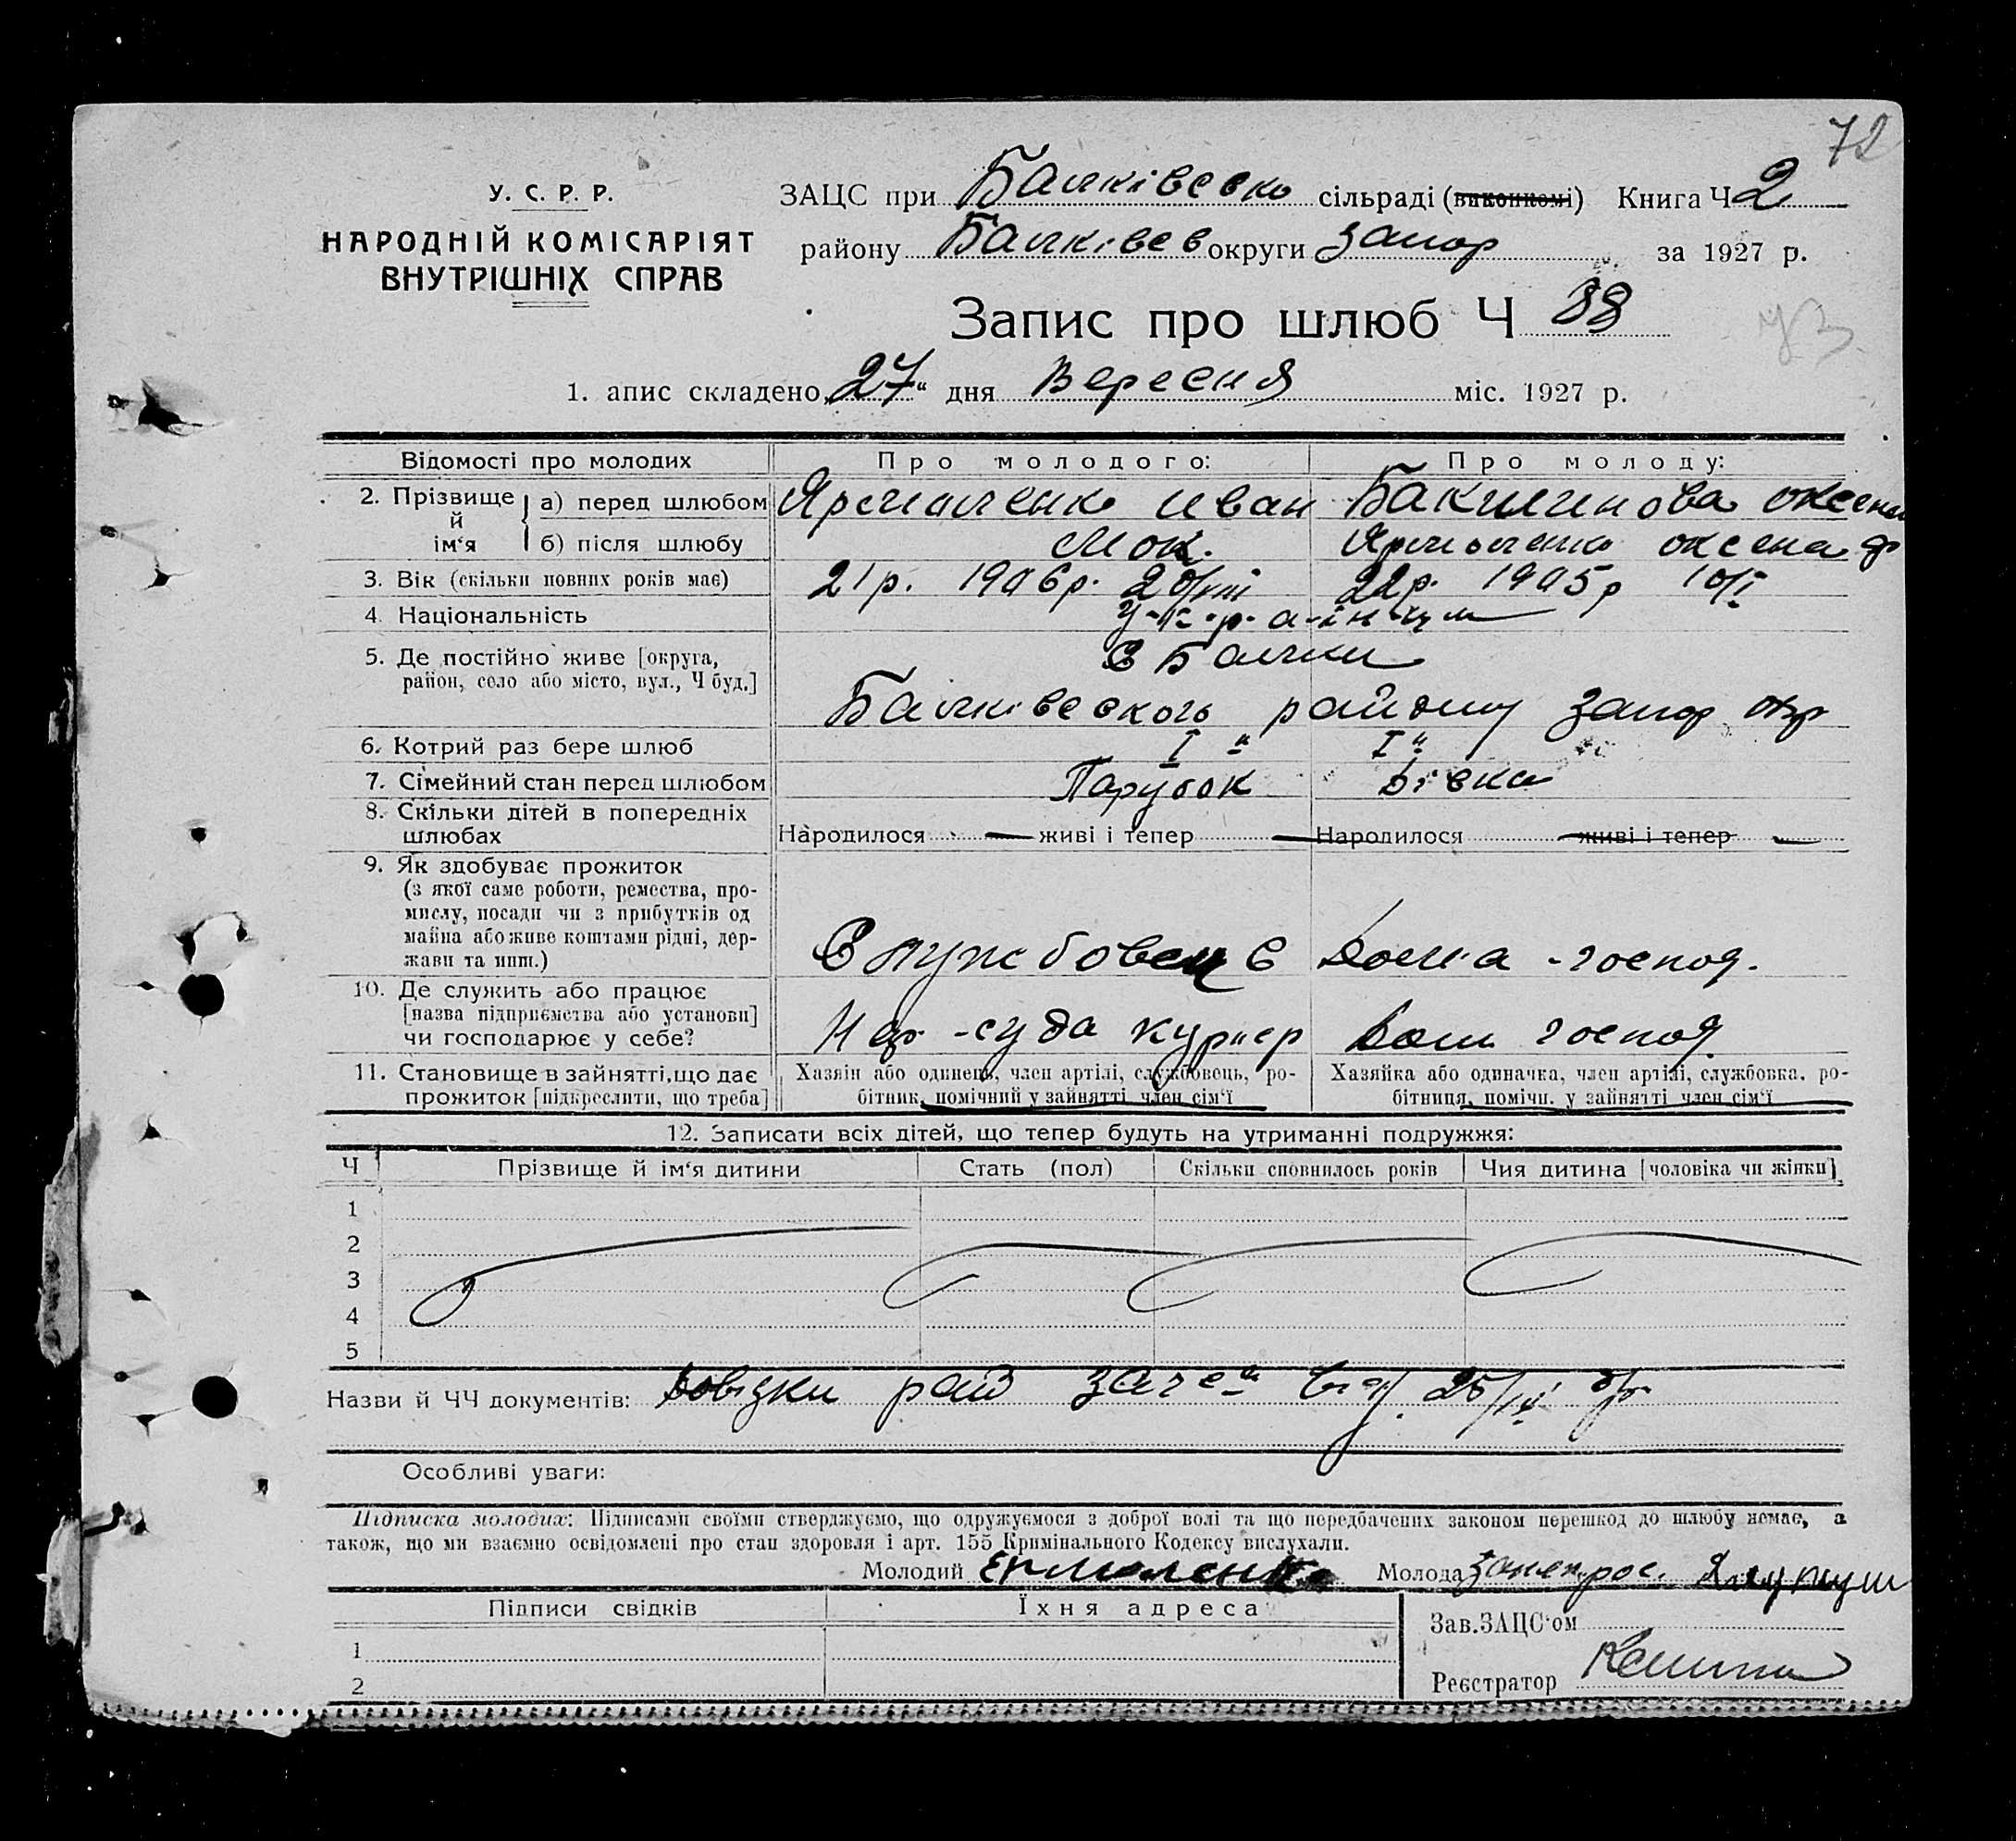 72
У. С. Р. Р.
НАРОДНІЙ КОМІСАРІЯТ
ВНУТРІШНІХ СПРАВ
ЗАЦС при Балківсько сільраді (виконкомі) Книга Ч 2
району Балківсв округи Запор за 1927 р.
Запис про шлюб Ч 38
1. апис складено „27“ дня Вересня міс. 1927 р.
Відомості про молодих Про молодого: Про молоду:
2. Прізвище й ім‘я
а) перед шлюбом Иван Оксена
б) після шлюбу оксена
3. Вік (скільки повних років має) 21 р. 1906 р. 20/VIII 22 р. 1905 р 10/I
4. Національність У-к-р-а-їн-ци
5. Де постійно живе [округа, район, село або місто, вул., Ч буд.] С Балки
Балківського району Запор окр
6. Котрий раз бере шлюб I й I й
7. Сімейний стан перед шлюбом Парубок Дівка
8. Скільки дітей в попередніх шлюбах Народилося — живі і тепер — Народилося живі і тепер —
9. Як здобуває прожиток
(з якої саме роботи, ремества, про-
мислу, посади чи з прибутків од
майна або живе коштами рідні, дер-
жави та инш.) Службовец Дома-господ.
10. Де служить або працює
[назва підприємства або установи]
чи господарює у себе? Нар-суда курьер Дом господ
11. Становище в зайнятті, що дає
прожиток [підкреслити, що треба]
Хазяін або одинець, член артілі, службовець, ро-
бітник, помічний у зайнятті член сім‘ї
Хазяйка або одиначка, член артілі, службовка, ро-
бітниця, помічн. у зайнятті член сім‘ї
12. Записати всіх дітей, що тепер будуть на утриманні подружжя:
Ч Прізвище й ім‘я дитини Стать (пол) Скільки сповнилось років Чия дитина [чоловіка чи жінки]
1
2
3
4
5
Назви й ЧЧ документів: Довідки від 25/IX
Особливі уваги:
Підписка молодих: Підписами своїми стверджуємо, що одружуємося з доброї волі та що передбачених законом перешкод до шлюбу немає, а
також, що ми взаємно освідомлені про стан здоровля і арт. 155 Кримінального Кодексу вислухали.
Молодий Ермоленко Молода
Підписи свідків Їхня адреса Зав. ЗАЦС‘ом
1
2
Реєстратор